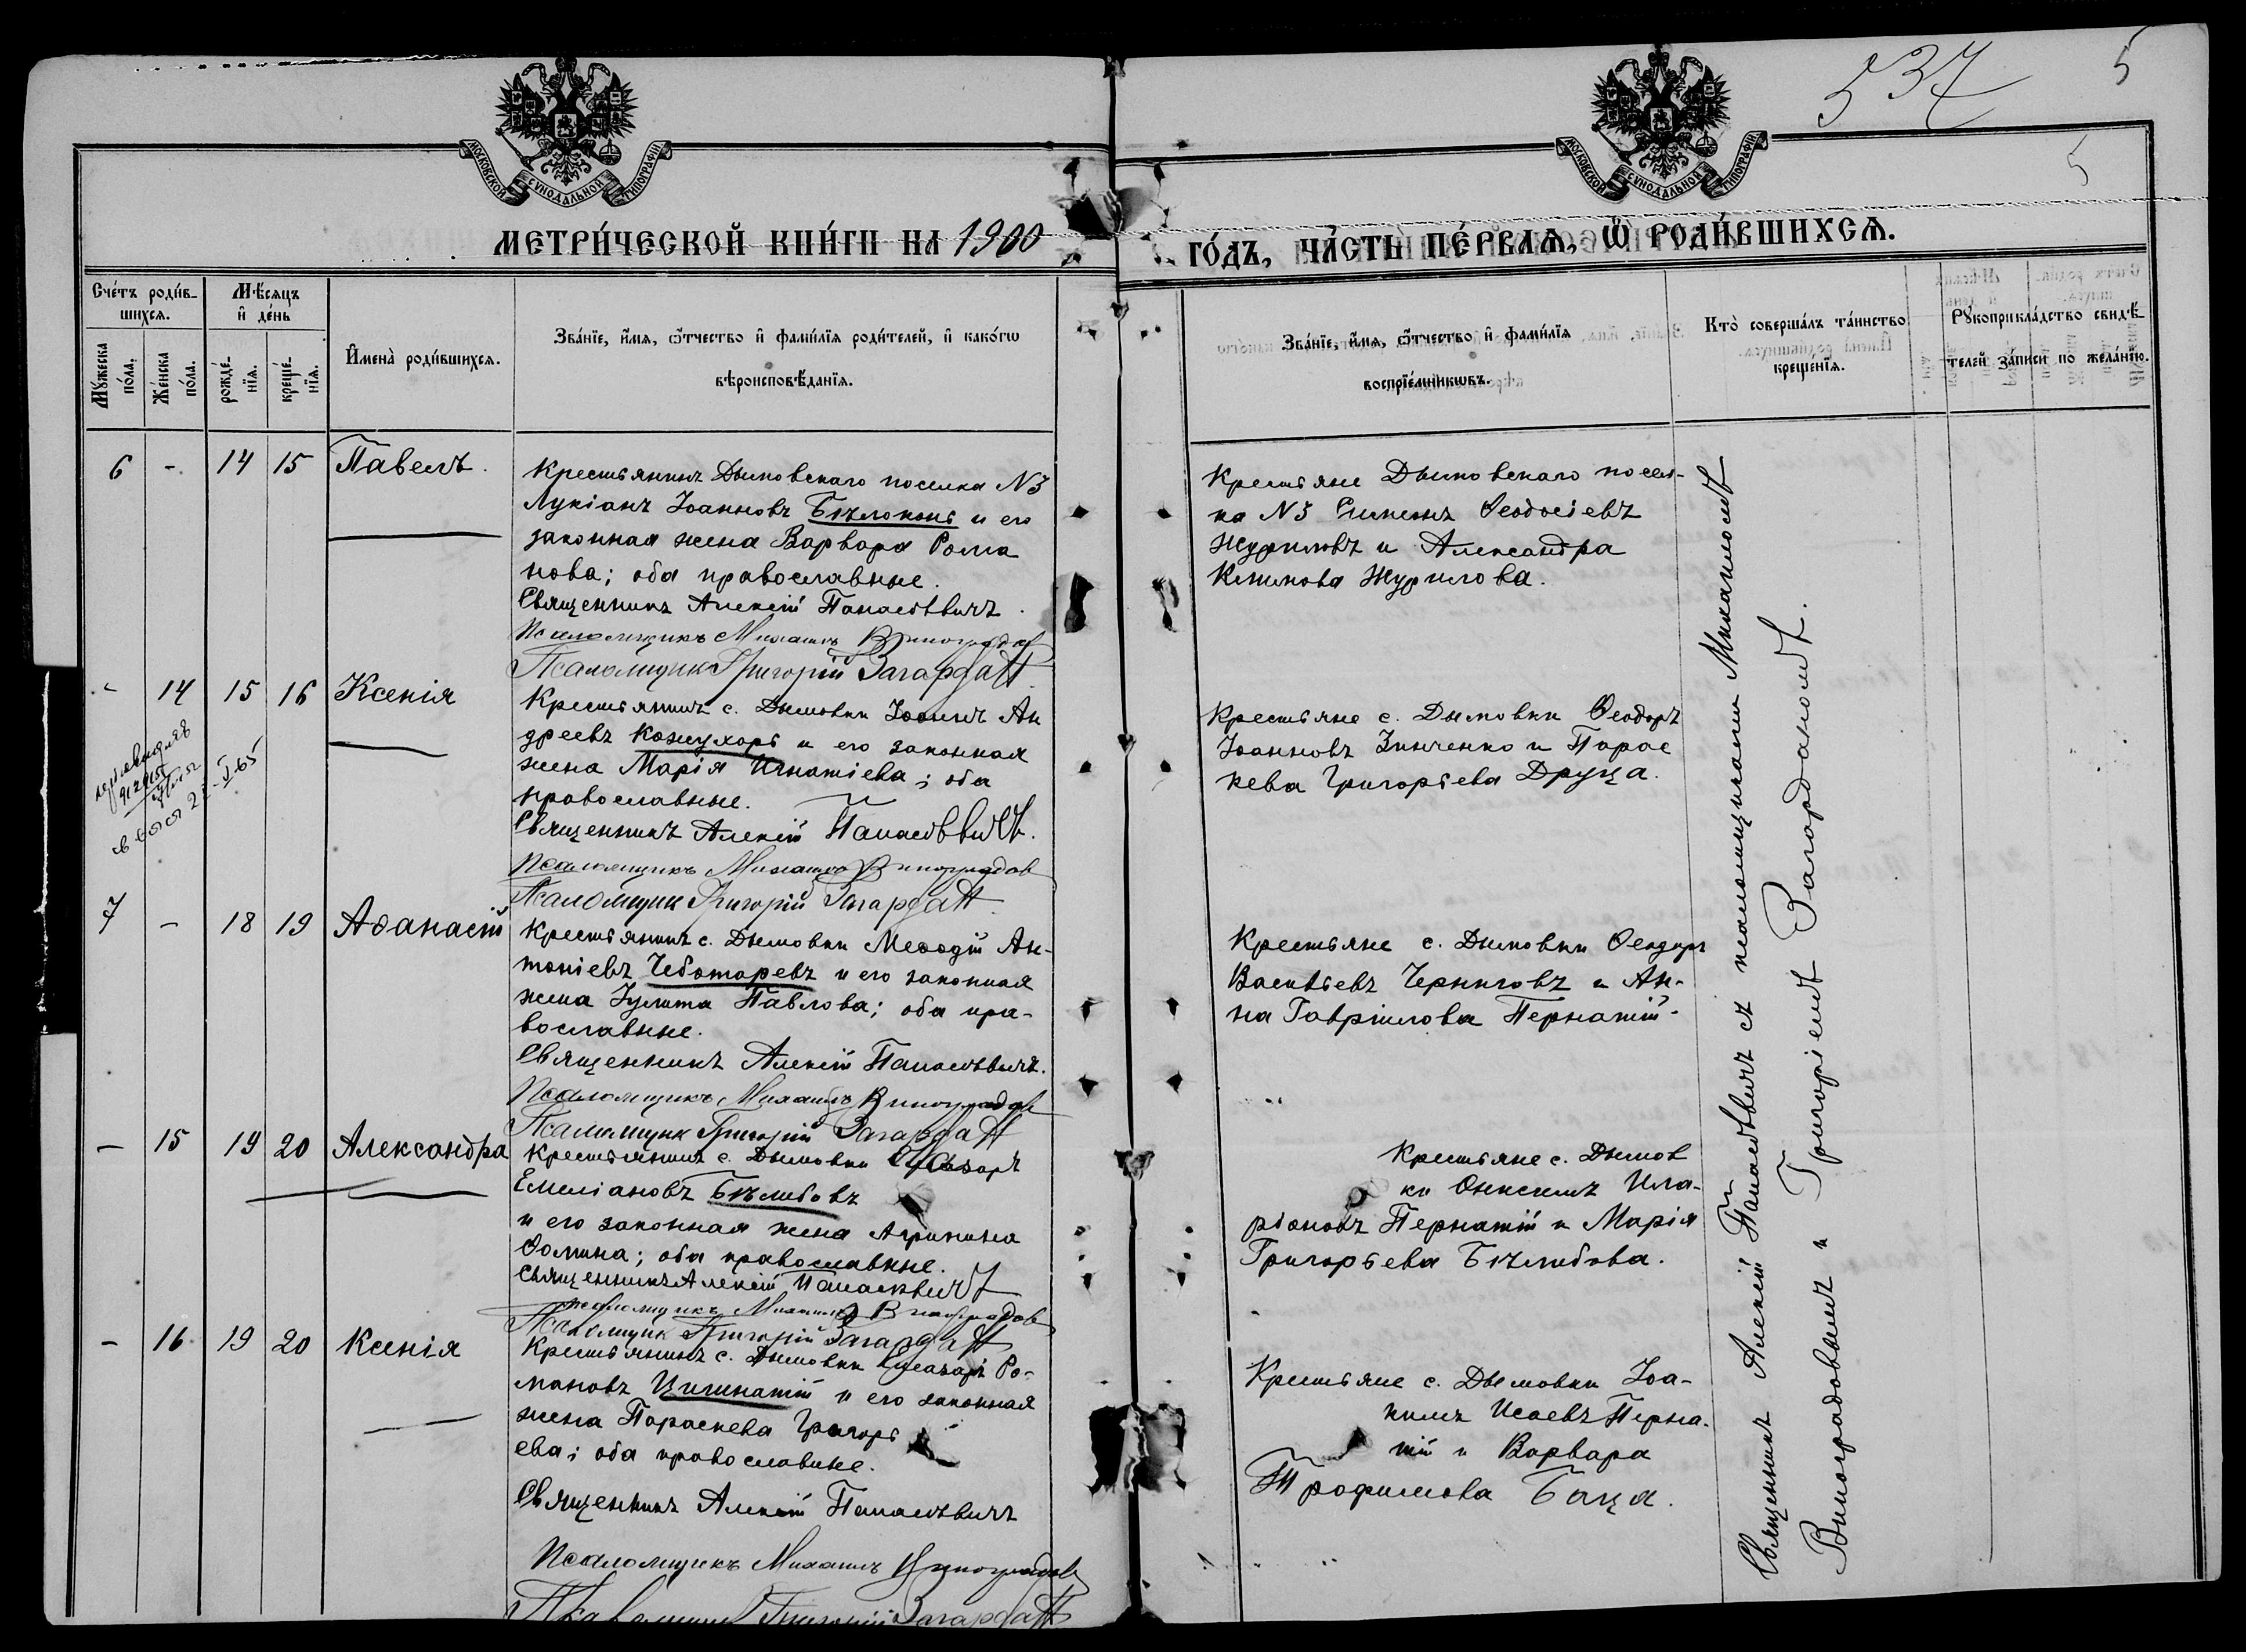 537
5
5
МОСКОВСКОЙ СѴНОДАЛЬНОЙ ТИПОГРАФІИ
МОСКОВСКОЙ СѴНОДАЛЬНОЙ ТИПОГРАФІИ
МЕТРИ́ЧЕСКОЙ КНИ́ГИ НА 1900
ГО́ДЪ, ЧА́СТЬ ПЕ́РВАѦ, Ѿ РОДИ́ВШИХСѦ.
Сче́тъ роди́в-
шихсѧ.
Мѣ́сѧцъ
и҆ де́нь
Мꙋ́жеска
по́ла.
Же́нска
по́ла.
рожде́-
нїѧ.
креще́-
нїѧ.
И҆мена̀ роди́вшихсѧ.
Зва́нїе, и҆́мѧ, ѻ҆́тчество и҆ фами́лїѧ роди́телей, и҆ како́гѡ
вѣроисповѣ́данїѧ.
Зва́нїе, и҆́мѧ, ѻ҆́тчество и҆ фами́лїѧ
воспрїе́мникѡвъ.
Кто̀ соверша́лъ та́инство
креще́нїѧ.
Рꙋкоприкла́дство свидѣ́-
телей за́писи по жела́нїю.
6 - 14 15 Павелъ.
Крестьянинъ Дымовскаго поселка №3
Лукіанъ Іоанновъ Бѣлоконь и его
законная жена Варвара Рома
нова; оба православные.
Священникъ Алексій Панасѣвичъ.
Псаломщикъ Михаилъ Виноградов
Псаломщик Григорій Загардан
Крестьяне Дымовскаго посел-
ка №3 Симеонъ Ѳеодосіевъ
Журиловъ и Александра
Климова Журилова.
- 14 15 16 Ксенія
Крестьянинъ с. Дымовки Іоаннъ Ан
дреевъ Кожухарь и его законная
жена Марія Игнатіева; оба
православные.
Священникъ Алексій Панасѣвичъ.
Псаломщикъ Михаилъ Виноградов
Псаломщик Григорій Загардан
Крестьяне с. Дымовки Ѳеодоръ
Іоанновъ Зинченко и Парас
кева Григорьева Друца.
7 - 18 19 Аѳанасій
Крестьянинъ с. Дымовки Меѳодій Ан-
тоніевъ Чеботаревъ и его законная
жена Іулита Павлова; оба пра-
вославные.
Священникъ Алексій Панасѣвичъ.
Псаломщикъ Михаилъ Виноградов
Псаломщик Григорій Загардан
Крестьяне с. Дымовки Ѳеодоръ
Васильевъ Черниговъ и Ан-
на Гавріилова Пернатій.
- 15 19 20 Александра
Крестьянинъ с. Дымовки
Емеліановъ Бѣлибовъ
и его законная жена Агрипина
Ѳомина; оба православные.
Священникъ Алексій Панасѣвичъ
Псаломщикъ Михаилъ Виноградов
Псаломщик Григорій Загардан
Крестьяне с. Дымов
ки Онисимъ Ила-
ріоновъ Пернатій и Марія
Григорьева Бѣлибова.
- 16 19 20 Ксенія
Крестьянинъ с. Дымовки Елеазаръ Ро-
мановъ Цигинатій и его законная
жена Параскева Григорь
ева; оба православные.
Священникъ Алексій Панасѣвичъ
Псаломщикъ Михаилъ Виноградовъ
Псаломщик Григорій Загардан
Крестьяне с. Дымовки Іоа-
кимъ Исаевъ Перна-
тій и Варвара
Трофимова Баца.
Священникъ Алексій Панасѣвичъ съ псаломщиками Михаиломъ
Виноградовымъ и Григоріемъ Загарданомъ.